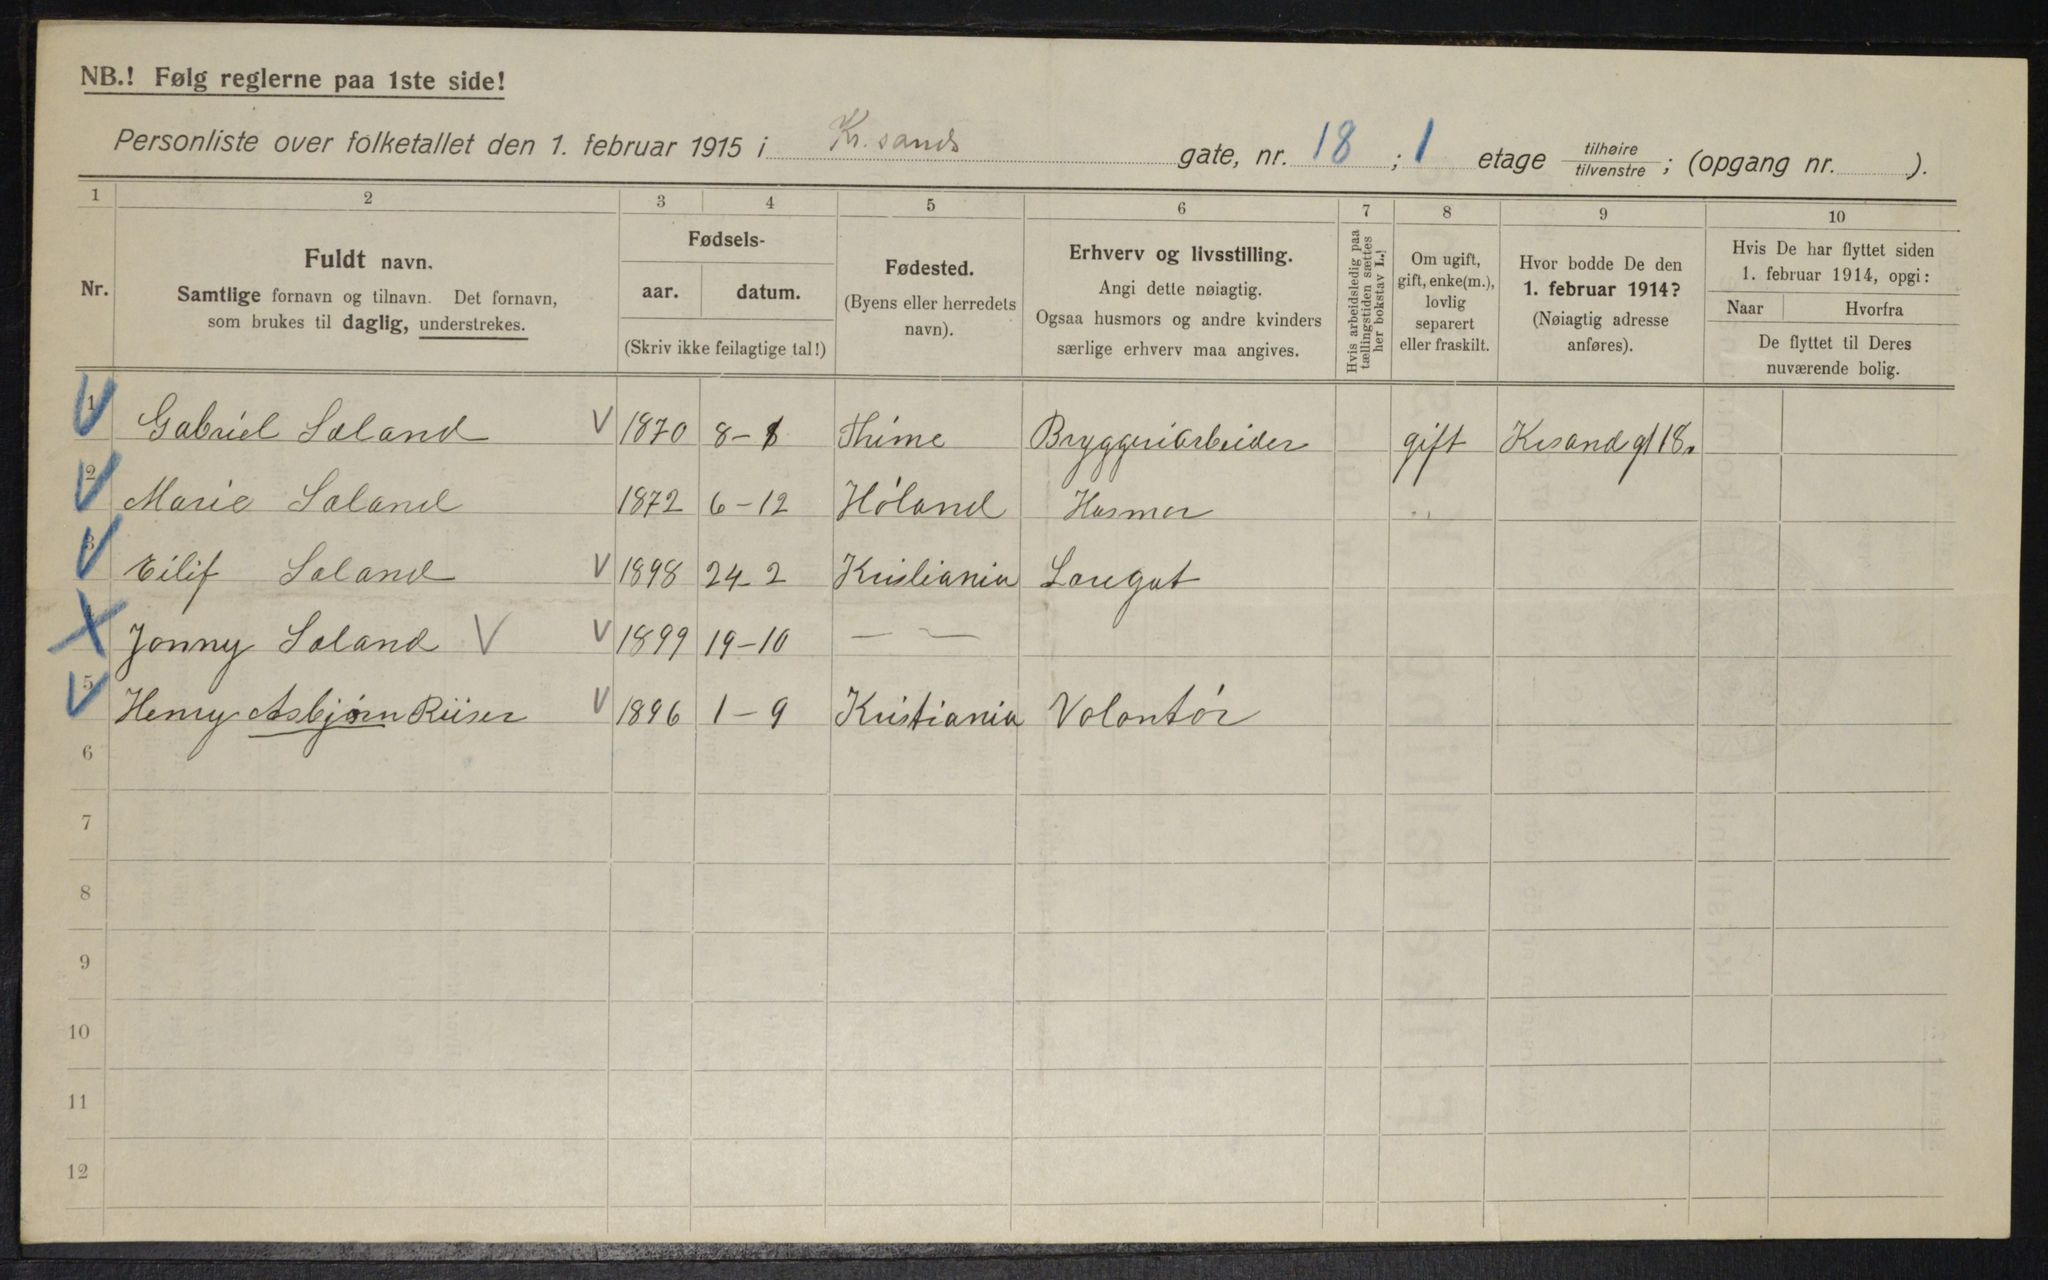 NB.! Følg reglerne paa 1ste side!
Personliste over folketallet den 1. februar 1915 i Kr.sands gate, nr. 18 ; 1 etage tilhøire tilvenstre ; (opgang nr. ).
1 2 3 4 5 6 7 8 9 10
Nr.
Fuldt navn.
Samtlige fornavn og tilnavn. Det fornavn,
som brukes til daglig, understrekes.
Fødsels-
aar. datum.
(Skriv ikke feilagtige tal!)
Fødested.
(Byens eller herredets
navn).
Erhverv og livsstilling.
Angi dette nøiagtig.
Ogsaa husmors og andre kvinders
særlige erhverv maa angives.
Hvis arbeidsledig paa
tællingstiden sættes
her bokstav L.!
Om ugift,
gift, enke(m.),
lovlig
separert
eller fraskilt.
Hvor bodde De den
1. februar 1914?
(Nøiagtig adresse
anføres).
Hvis De har flyttet siden
1. februar 1914, opgi:
Naar Hvorfra
De flyttet til Deres
nuværende bolig.
1 Gabriel Sæland V 1870 8-8 Thime Bryggeriarbeider gift Krsand gt 18.
2 Marie Sæland 1872 6-12 Høland Husmor
3 Eilif Sæland V 1898 24-2 Kristiania
4 Jonny Sæland V V 1899 19-10 — —
5 Henry Asbjørn Riiser V 1896 1-9 Kristiania Volontør
6
7
8
9
10
11
12